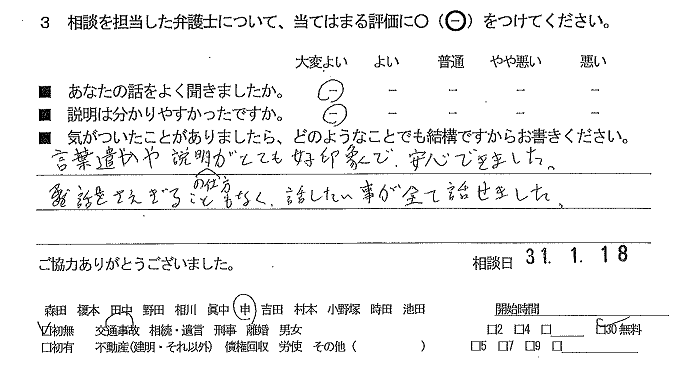 3 相談を担当した弁護士について、当てはまる評価に○（㊀）をつけてください。
大変よい よい 普通 やや悪い 悪い
■ あなたの話をよく聞きましたか。 － － － － －
■ 説明は分かりやすかったですか。 － － － － －
■ 気がついたことがありましたら、どのようなことでも結構ですからお書きください。
言葉遣いや 説明がとても 好印象で、安心できました。
の仕方
話をさえぎる こともなく、話したい事が全て話せました。
ご協力ありがとうございました。
相談日 31. 1. 18
森田 榎本 田中 野田 相川 眞中 申 吉田 村本 小野塚 時田 池田 開始時間
□初無 交通事故 相続・遺言 刑事 離婚 男女 □2 □4 □ □30無料
□初有 不動産(建明・それ以外) 債権回収 労使 その他（ ） □5 □7 □9 □